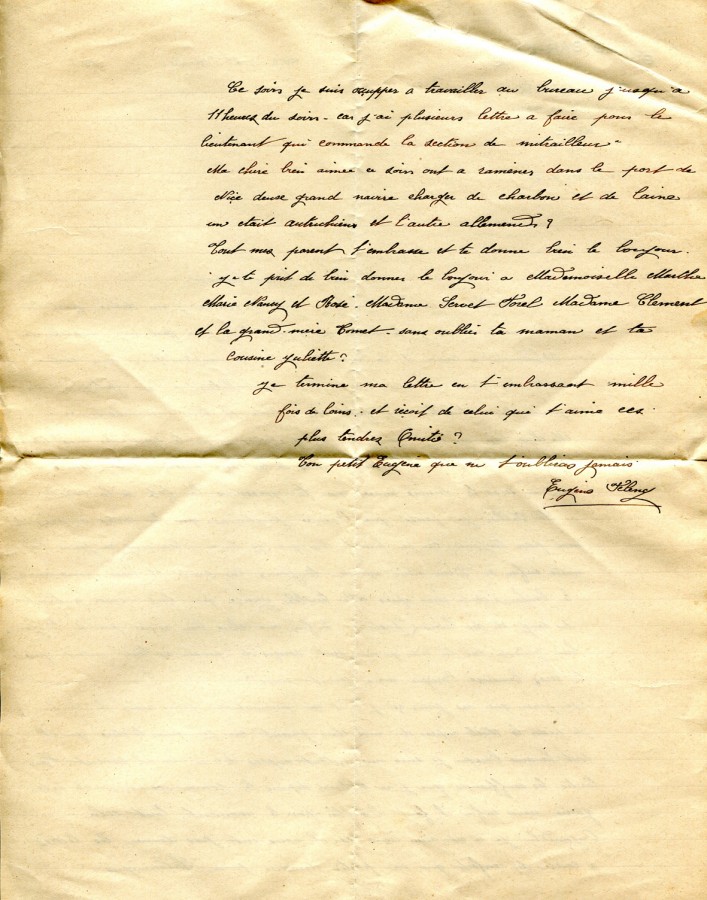 Ce soirs je suis occupper a travailler au bureau jusqu'a
11 heures du soirs - car j'ai plusieurs lettre a faire pour le
lieutenant qui commande la section de mitrailleur -
Ma chère bien aimée ce soirs ont a ramènes dans le port de
Nice deuse grand navire charger de charbon et de laine
un etait autruchiens et l'autre allemends ?
Tout mes parent t'embrasse et te donne bien le bonjour.
je te prit de bien donner le bonjour a Mademoiselle Marthe
Marie Nancy et Rose. Madame Servet Forel Madame Clement
et la grand-mère Comet - sans oublies ta maman et ta
cousine juliette ?
je termine ma lettre en t'embrassant mille
fois de loins. et reçoit de celui qui t'aime ces
plus tendres Amitié ?
Ton petit Eugène que ne t'oublieras jamais
Eugène Feleng